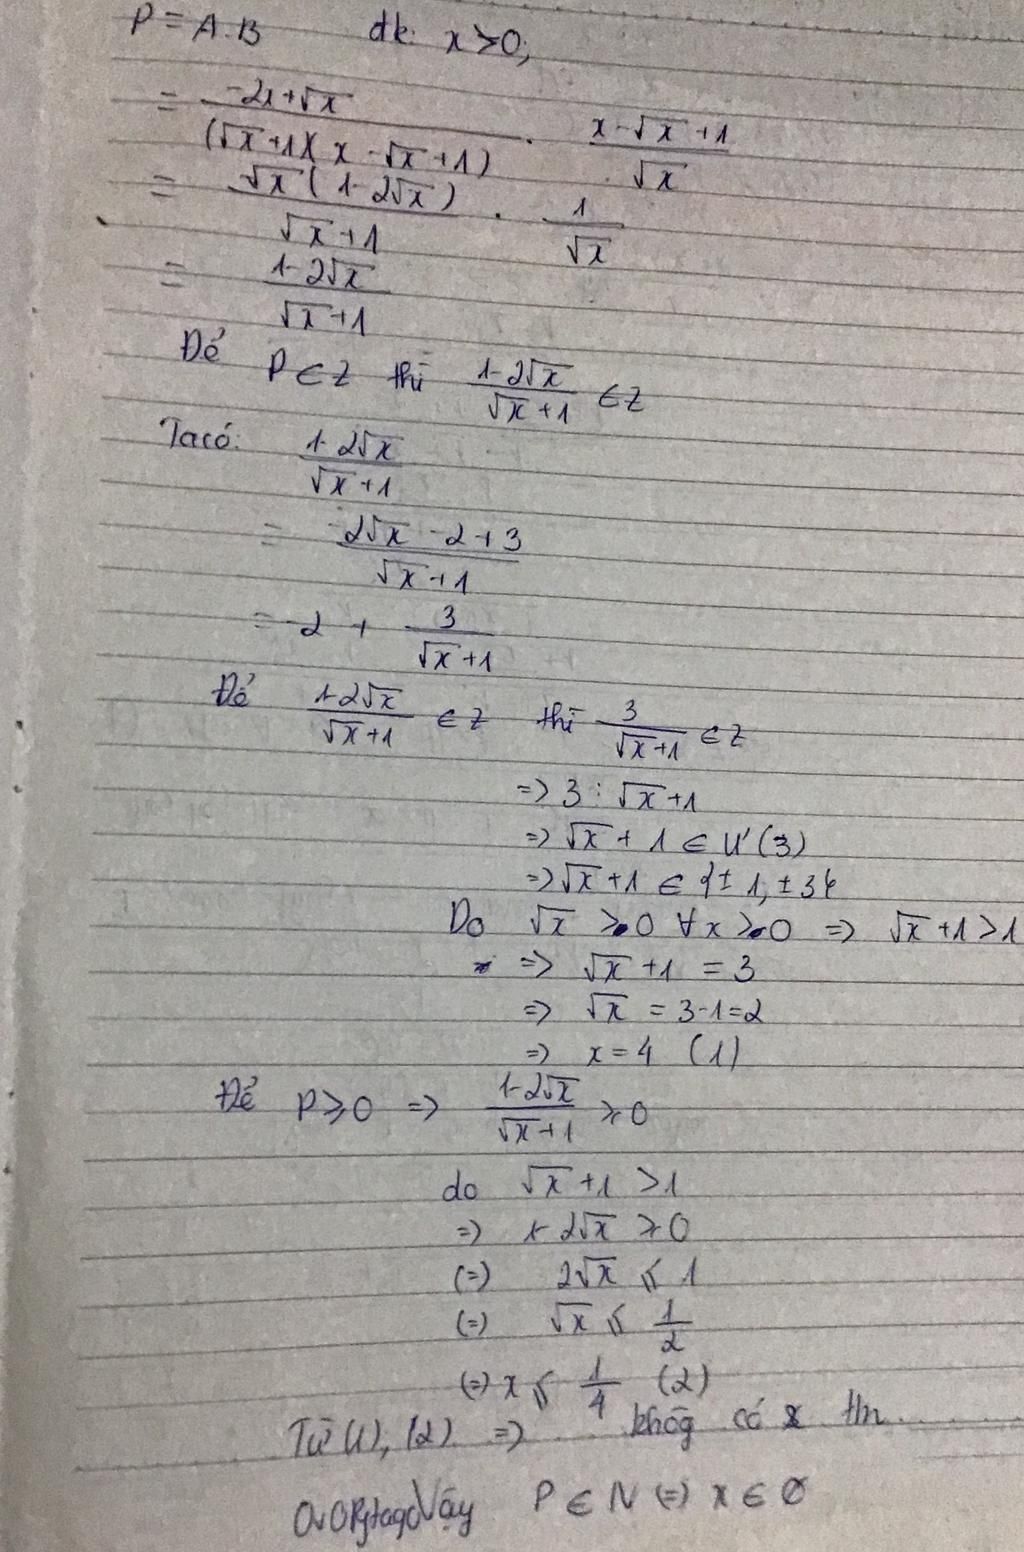 P = A.B đk: x > 0,
= (-2x+√x)/((√x+1)(x-√x+1)) . (x-√x+1)/√x
= √x(1-2√x)/(√x+1) . 1/√x
= (1-2√x)/(√x+1)
Để P ∈ Z thì (1-2√x)/(√x+1) ∈ Z
Ta có: (1-2√x)/(√x+1)
= (-2√x-2+3)/(√x+1)
= -2 + 3/(√x+1)
Để (1-2√x)/(√x+1) ∈ Z thì 3/(√x+1) ∈ Z
=> 3 ⋮ √x+1
=> √x+1 ∈ Ư(3)
=> √x+1 ∈ {±1, ±3}
Do √x > 0 ∀x > 0 => √x+1 > 1
=> √x+1 = 3
=> √x = 3-1=2
=> x=4 (1)
Để P ⩾ 0 => (1-2√x)/(√x+1) ⩾ 0
do √x+1 > 1
=> 1-2√x ⩾ 0
(=) 2√x ⩽ 1
(=) √x ⩽ 1/2
(=) x ⩽ 1/4 (2)
Từ (1), (2) => không có x tm
Vậy P ∈ N (=) x ∈ ∅